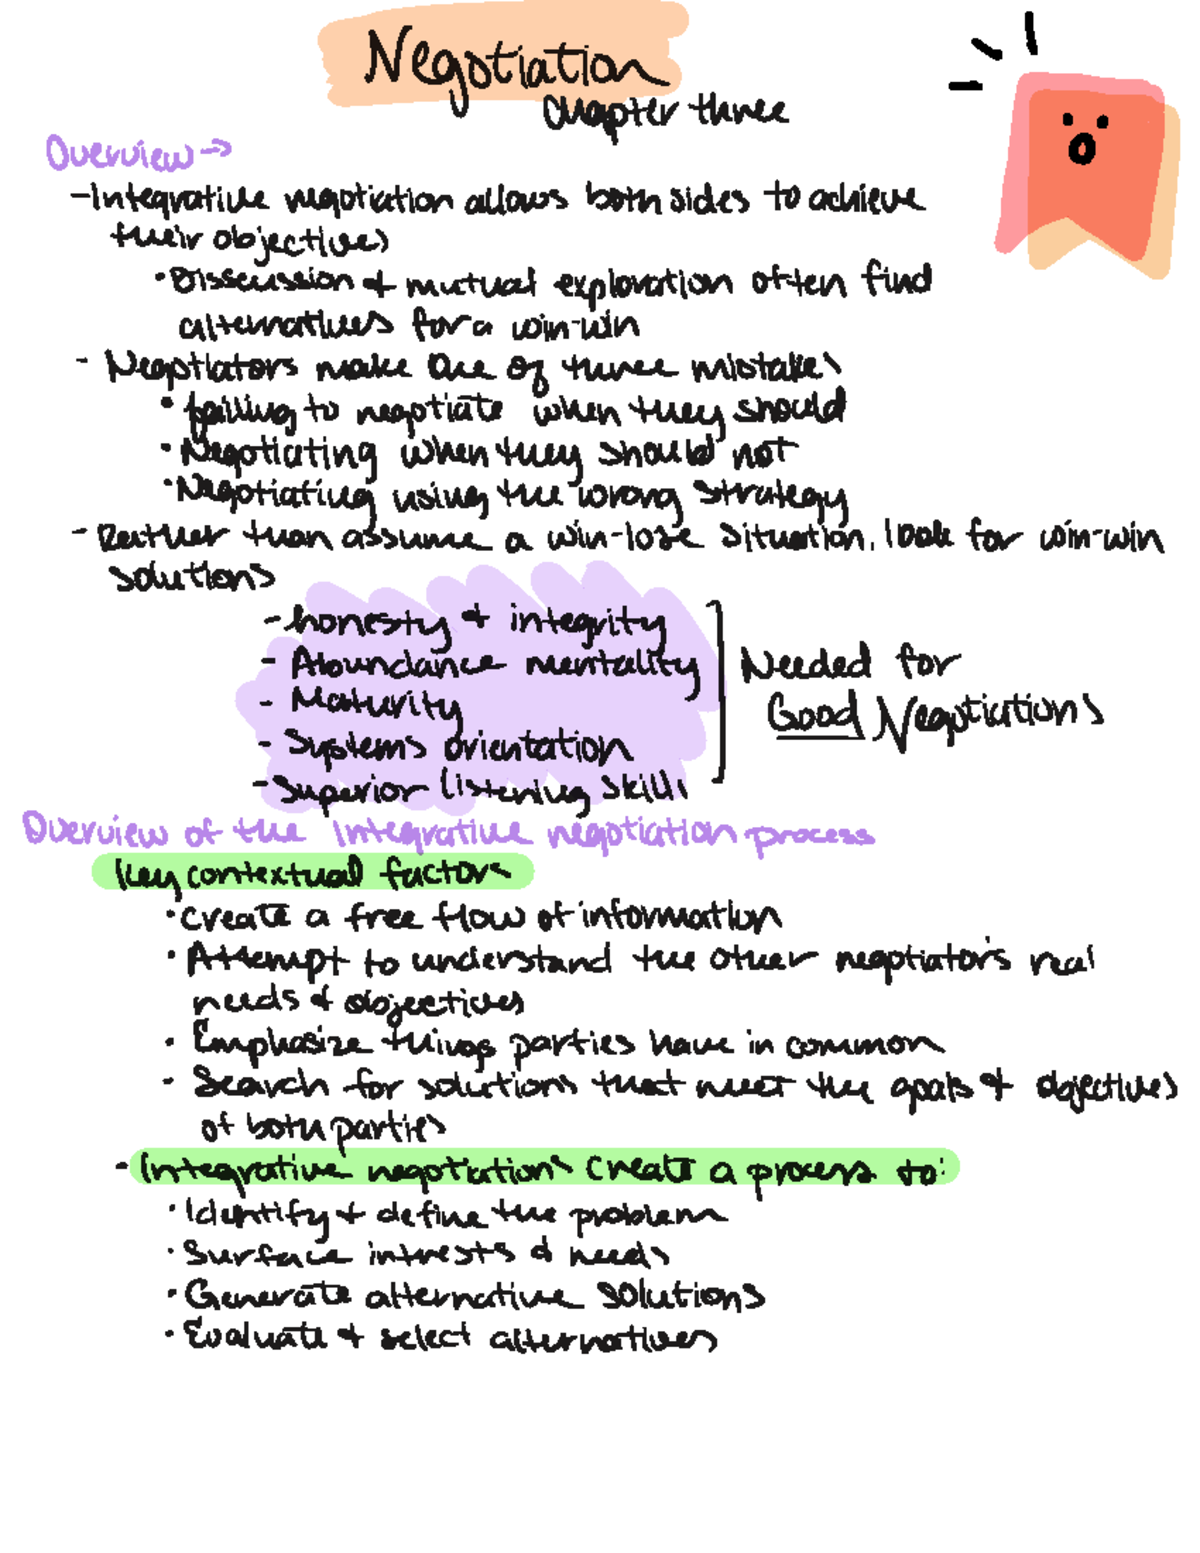 Negotiation
chapter three
Overview →
- Integrative negotiation allows both sides to achieve
their objectives
• Disscussion & mutual exploration often find
alternatives for a win-win
- Negotiators make one of three mistakes
• failing to negotiate when they should
• Negotiating when they should not
• Negotiating using the wrong strategy
- Rather than assume a win-lose situation, look for win-win
solutions
- honesty & integrity
- Abundance mentality
- Maturity
- Systems orientation
- Superior listening skills
Needed for
Good Negotiations
Overview of the integrative negotiation process
Key contextual factors
• Create a free flow of information
• Attempt to understand the other negotiator's real
needs & objectives
• Emphasize things parties have in common
• Search for solutions that meet the goals & objectives
of both parties
- Integrative negotiations create a process to:
• Identify & define the problem
• Surface intrests & needs
• Generate alternative solutions
• Evaluate & select alternatives